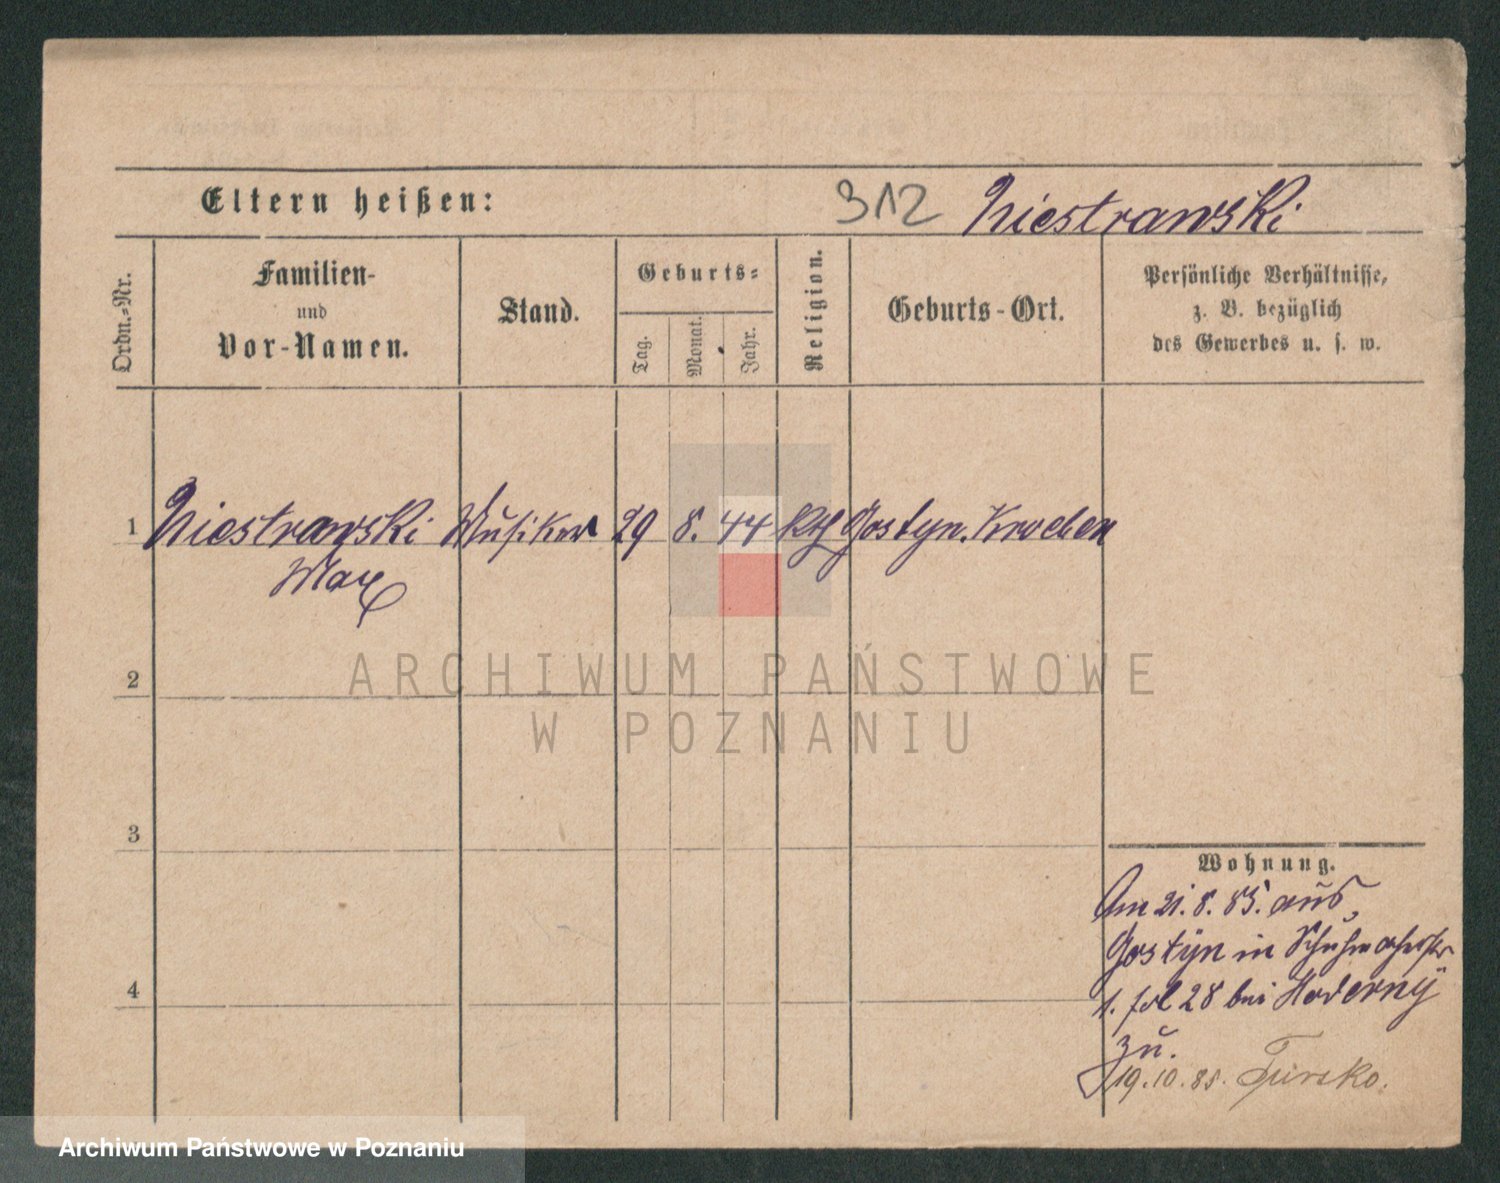 Eltern heißen: 312 Niestrawski
Ordn.-Nr.
Familien-
und
Vor-Namen.
Stand.
Geburts-
Tag.
Monat.
Jahr.
Religion.
Geburts-Ort.
Persönliche Verhältnisse,
z. B. bezüglich
des Gewerbes u. s. w.
1 Niestrawski Musiker 29 8. 44 Kth Gostyn. Kroeben
Max
2
3
4
ARCHIWUM PAŃSTWOWE
W POZNANIU
Wohnung.
Am 21. 8. 85. aus
Gostÿn in Schuhmacherstr
1. fol 28 bei
zu.
19.10.85.
Archiwum Państwowe w Poznaniu